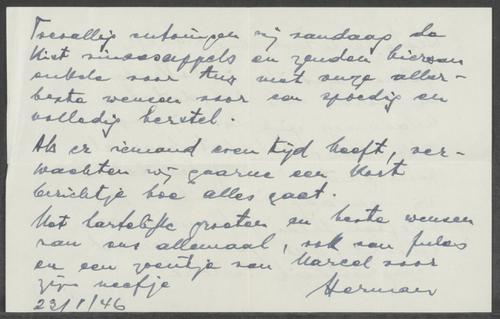 Toevallig ontvingen wij vandaag de
kist sinaasappels en zenden hiervan
enkele voor met onze aller-
beste wensen voor een spoedig en
volledig herstel.
Als er iemand even tijd heeft, ver-
wachten wij gaarne een kort
berichtje hoe alles gaat.
Met hartelijke groeten en beste wensen
van ons allemaal, ook van Jules
en een zoentje van Marcel voor
zijn neefje
Herman
23/1/46